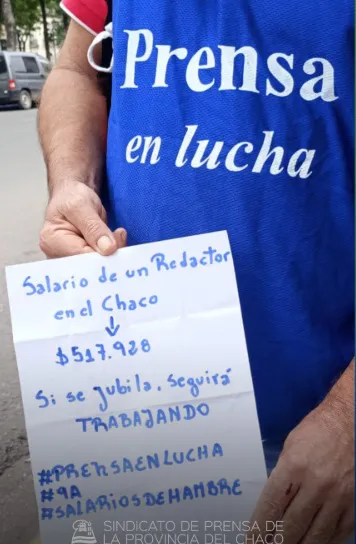 Prensa
en lucha
Salario de un Redactor
en el Chaco
↓
$517.928
Si se jubila, seguirá
TRABAJANDO
#PRENSAENLUCHA
#9A
#SALARIOSDEHAMBRE
SINDICATO DE PRENSA DE
LA PROVINCIA DEL CHACO